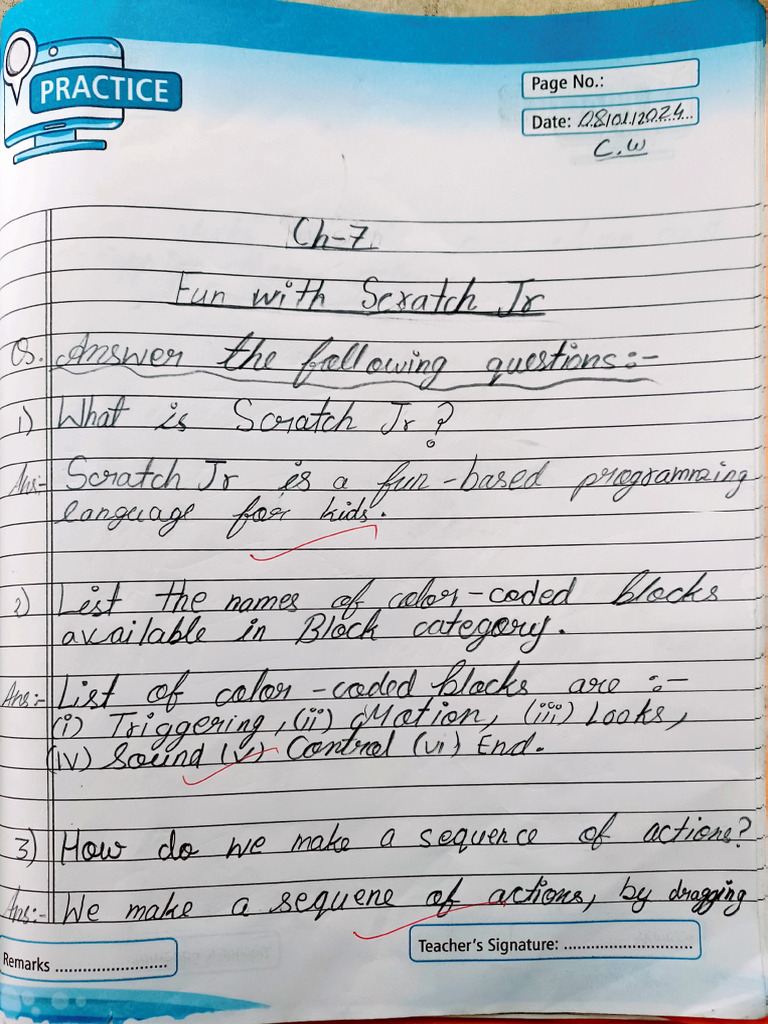 PRACTICE
Page No.:
Date: 08/01/2024
C.W
Ch-7
Fun with Scratch Jr
Qs. Answer the following questions:-
1) What is Scratch Jr?
Ans:- Scratch Jr is a fun-based programming
language for kids.
2) List the names of color-coded blocks
available in Block category.
Ans:- List of color-coded blocks are :-
(i) Triggering, (ii) Motion, (iii) Looks,
(iv) Sound (v) Control (vi) End.
3) How do we make a sequence of actions?
Ans:- We make a sequene of actions, by dragging
Remarks ........................
Teacher's Signature: ..............................